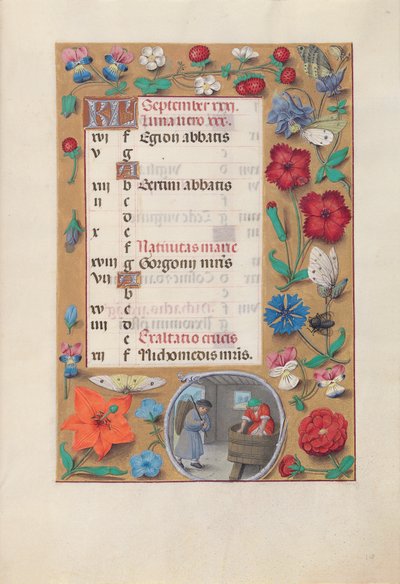 KL September xxx.
Luna vero xxx.
xvi f Egidii abbatis
v g
A
xiii b Bertini abbatis
ii c
d
x e
f Nativitas marie
xviii g Gorgonii mris
vii A
b
xv c
iiii d
e Exaltatio crucis
xii f Nichomedis mris.